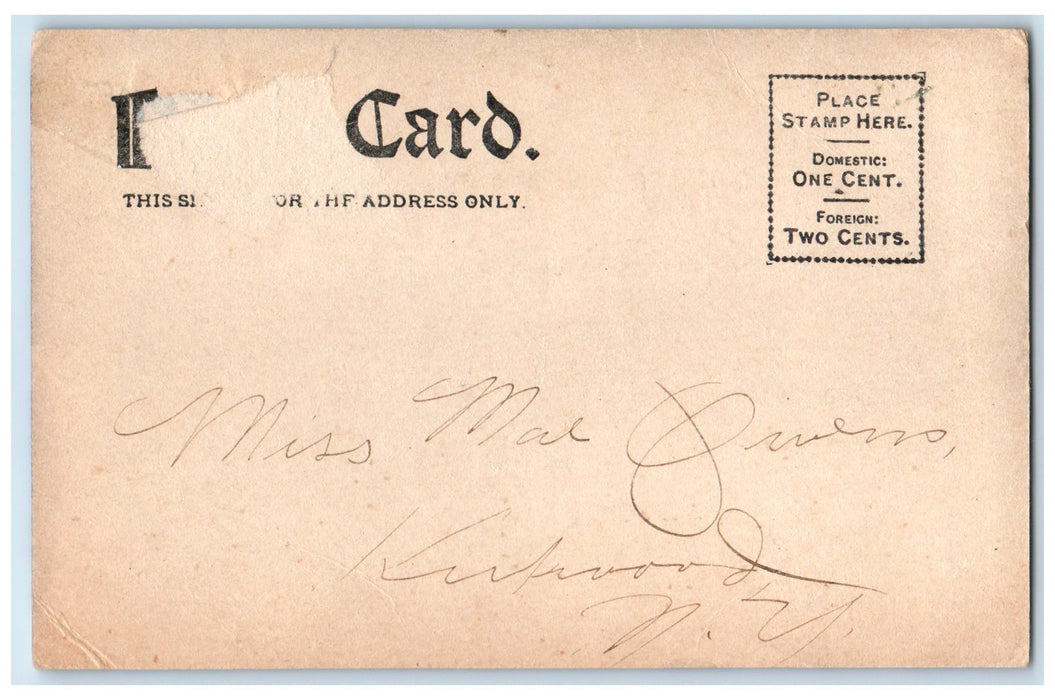 Card.
THIS SI OR THE ADDRESS ONLY.
PLACE
STAMP HERE.
DOMESTIC:
ONE CENT.
FOREIGN:
TWO CENTS.
Miss Mae Owens,
Kirkwood,
N.Y.